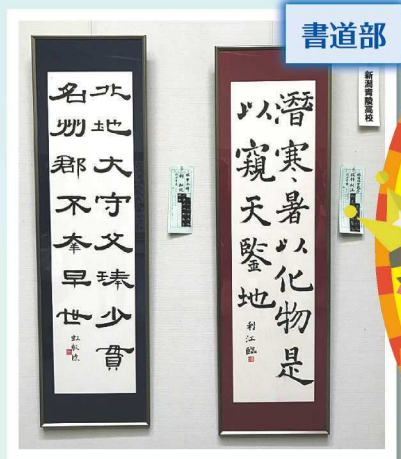 書道部
新潟青陵高校
潛寒暑以化物是
以窺天鑒地
利江臨
北地大守父琫少貫
名州郡不幸早世